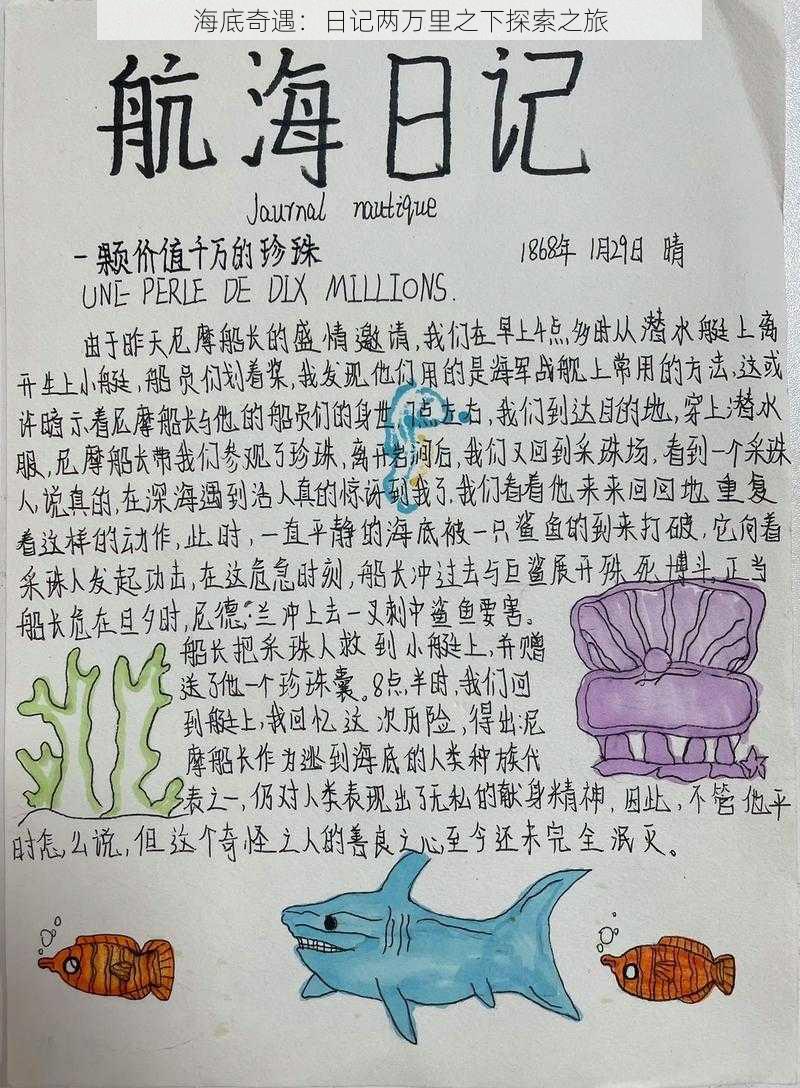 海底奇遇：日记两万里之下探索之旅
航海日记
Journal nautique
一颗价值千万的珍珠 1868年 1月29日 晴
UNE PERLE DE DIX MILLIONS.
由于昨天尼摩船长的盛情邀请,我们在早上4点多时从潜水艇上离
开坐上小艇,船员们划着桨,我发现他们用的是海军战舰上常用的方法,这或
许暗示着尼摩船长与他的船员们的身世,门点左右,我们到达目的地,穿上潜水
服,尼摩船长带我们参观了珍珠,离开岩洞后,我们又回到采珠场,看到一个采珠
人,说真的,在深海遇到活人真的惊讶到我了,我们看着他来来回回地重复
着这样的动作,此时,一直平静的海底被一只鲨鱼的到来打破,它向着
采珠人发起功击,在这危急时刻,船长冲过去与巨鲨展开殊死博斗,正当
船长危在旦夕时,尼德·兰冲上去一叉刺中鲨鱼要害。
船长把采珠人救到小艇上,并赠
送了他一个珍珠囊。8点半时,我们回
到艇上,我回忆这次历险,得出:尼
摩船长作为逃到海底的人类种族代
表之一,仍对人类表现出了无私的献身精神,因此,不管他平
时怎么说,但这个奇怪之人的善良之心至今还未完全泯灭。